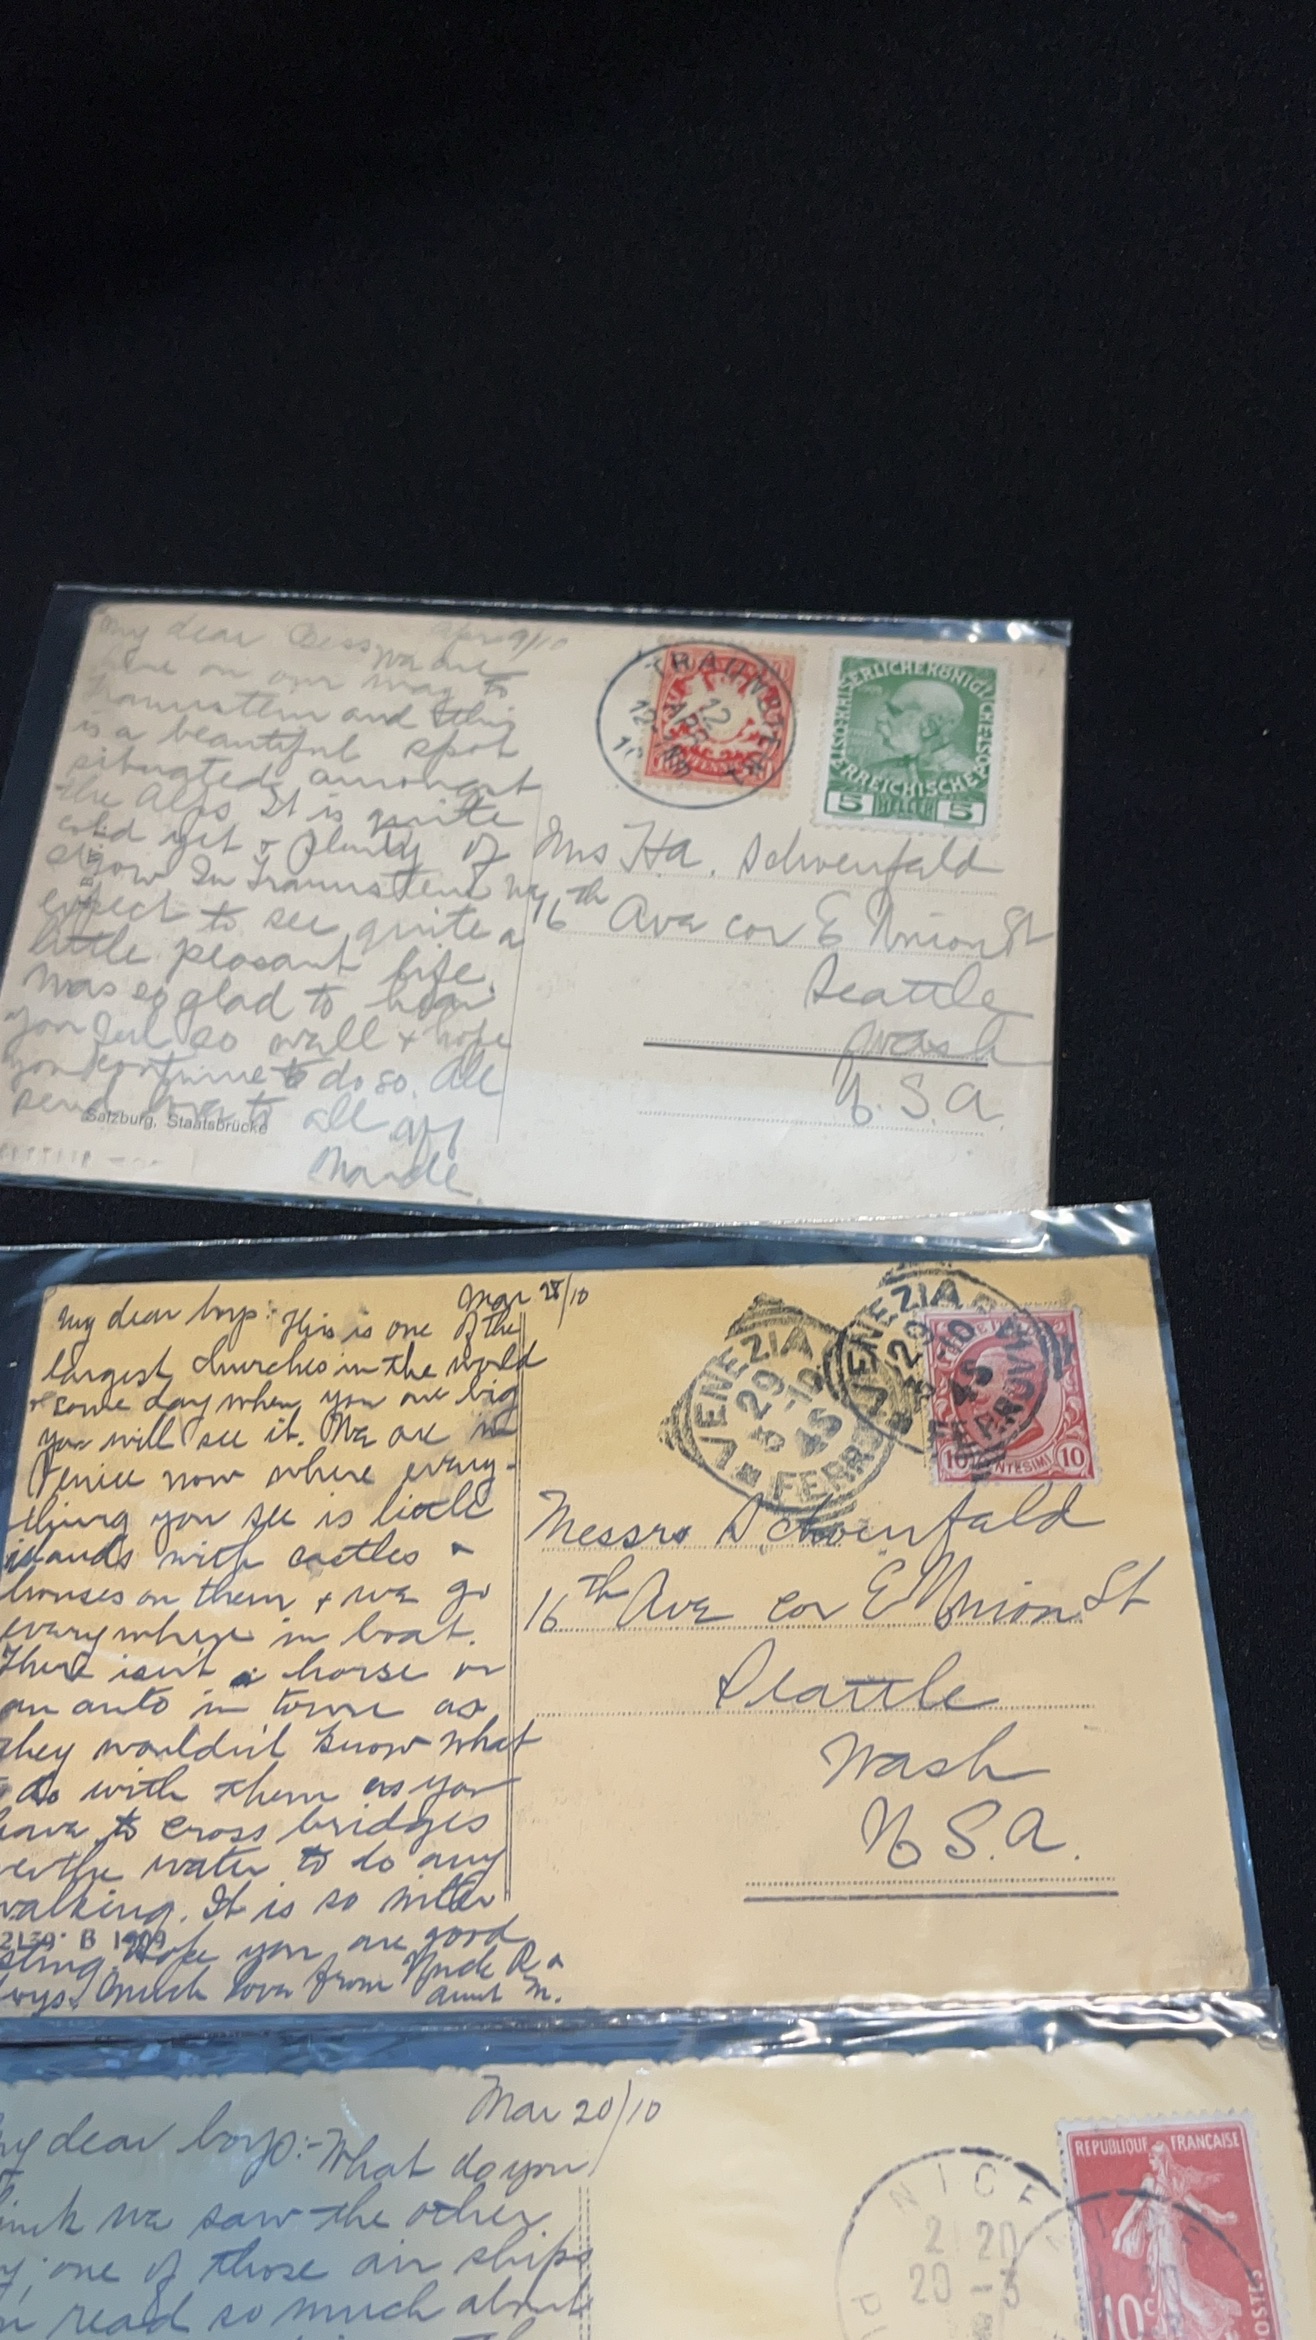 My dear Bess Apr 9/10
We are
here on our way to
Traunstein and this
is a beautiful spot
situated amongst
the Alps It is quite
cold yet & plenty of
snow In Traunstein we
expect to see quite a
little peasant life.
Was so glad to hear
you feel so well & hope
you continue to do so. All
send love to all aff
Maude.
Salzburg, Staatsbrücke
TRAUNSTEIN
12 APR
12
10
KAISERLICHE KÖNIGLICHE ÖSTERREICHISCHE POST
5 HELLER 5
Mrs H.A. Schoenfald
16th Ave cor E Union St
Seattle
Wash
U.S.A.
Mar 28/10
My dear boys:- This is one of the
largest churches in the world
& some day when you are big
you will see it. We are in
Venice now where every-
thing you see is little
islands with castles &
houses on them & we go
everywhere in boat.
There isn't a horse or
an auto in town as
they wouldn't know what
do with them as you
have to cross bridges
over the water to do any
walking. It is so inter
B 1909
sting. Hope you are good
boys. Much love from Uncle R &
Aunt M.
VENEZIA
29 3-10
4S
FERR
VENEZIA
29
10
4S
10 CENTESIMI 10
Messrs Schoenfald
16th Ave cor E Union St
Seattle
Wash
U.S.A.
Mar 20/10
My dear boys:- What do you
think we saw the other
one of those air ships
read so much about
NICE
20
REPUBLIQUE FRANÇAISE
10c
POSTES